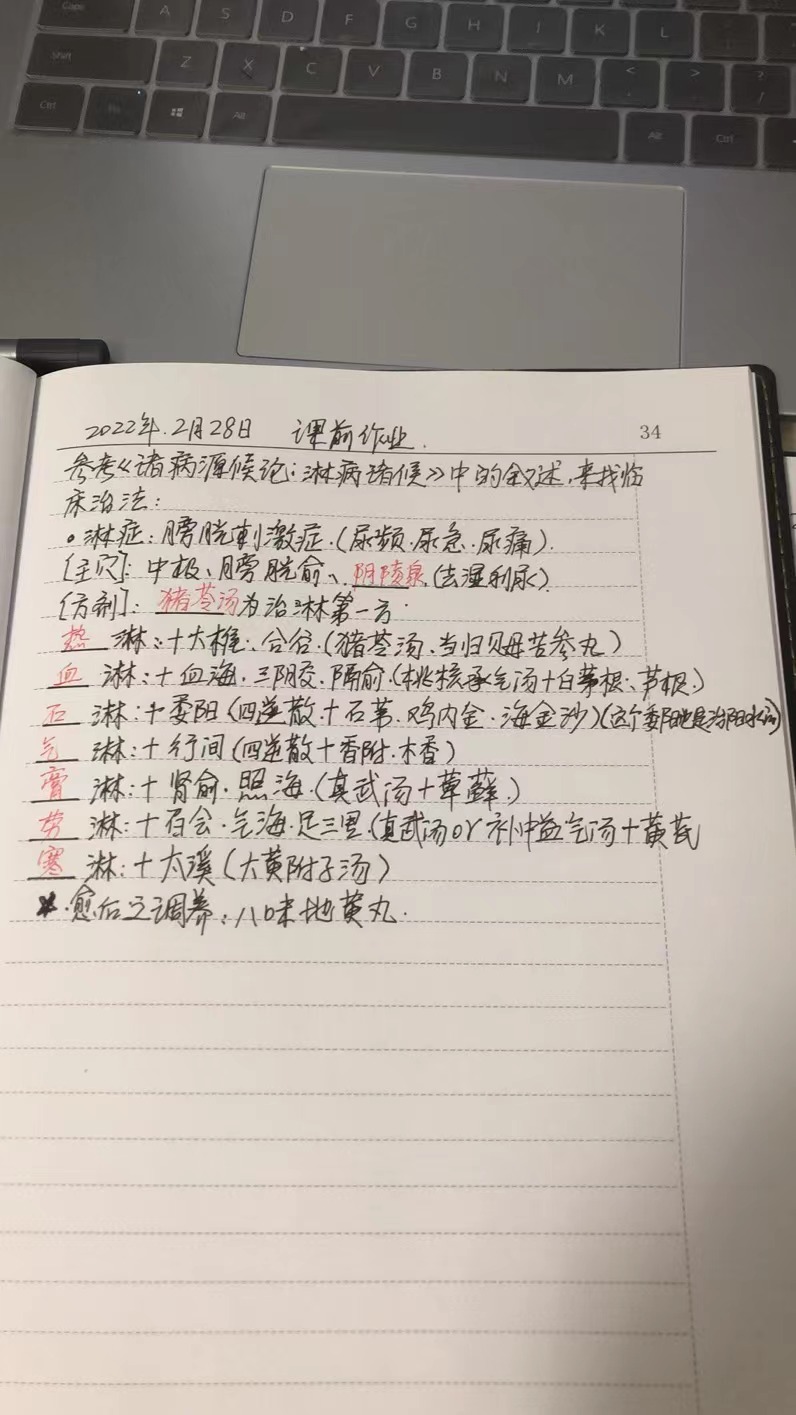 A S D F G H J K L
Shift Z X C V B N M < > ?
Ctrl Fn Alt Alt Ctrl
2022年.2月28日 课前作业.
34
参考《诸病源候论:淋病诸候》中的叙述,来找临
床治法:
•淋症:膀胱刺激症.(尿频.尿急.尿痛).
[主穴]:中极、膀胱俞、阴陵泉(去湿利尿)
[方剂]:猪苓汤为治淋第一方.
热淋:+大椎.合谷.(猪苓汤.当归贝母苦参丸)
血淋:+血海.三阴交.隔俞.(桃核承气汤+白茅根、芦根.)
石淋:+委阳(四逆散+石苇.鸡内金.海金沙)(这个委阳也是治阳水)
气淋:+行间(四逆散+香附.木香)
膏淋:+肾俞.照海.(真武汤+萆薢.)
劳淋:+百会.气海.足三里.(真武汤or补中益气汤+黄芪
寒淋:+太溪(大黄附子汤)
*.愈后之调养:八味地黄丸.